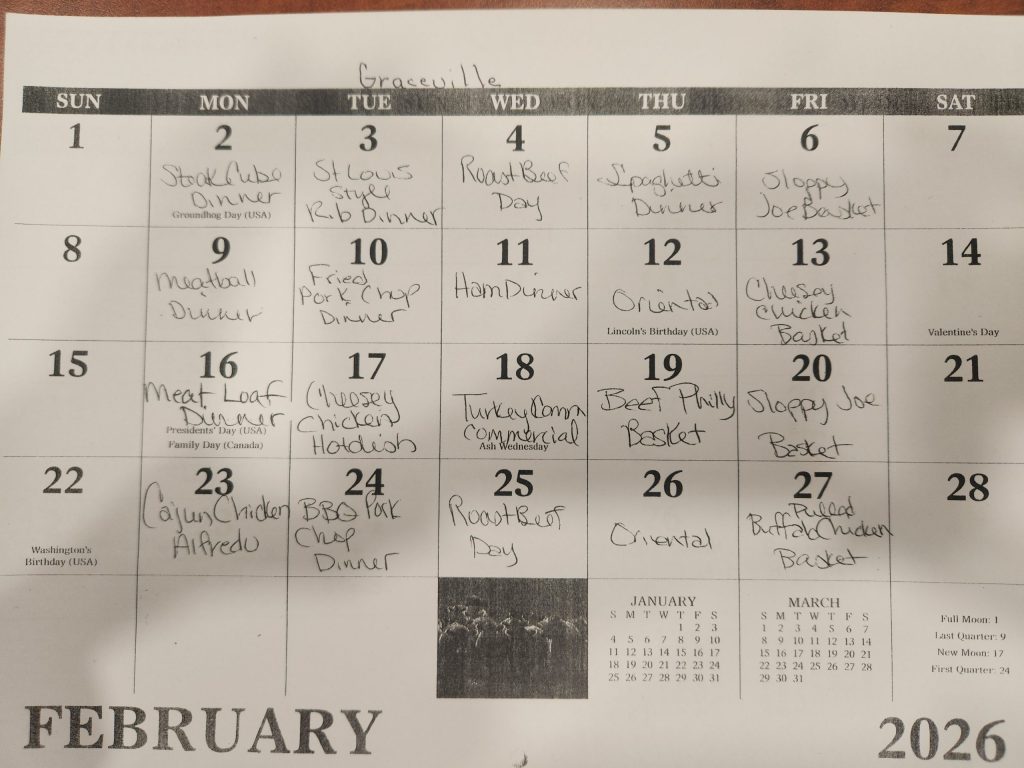 Graceville
SUN MON TUE WED THU FRI SAT
1
2
Steak Cube
Dinner
Groundhog Day (USA)
3
St Louis
Style
Rib Dinner
4
Roast Beef
Day
5
Spaghetti
Dinner
6
Sloppy
Joe Basket
7
8
9
Meatball
Dinner
10
Fried
Pork Chop
Dinner
11
Ham Dinner
12
Oriental
Lincoln's Birthday (USA)
13
Cheesey
Chicken
Basket
14
Valentine's Day
15
16
Meat Loaf
Dinner
Presidents' Day (USA)
Family Day (Canada)
17
Cheesey
Chicken
Hotdish
18
Turkey
Commercial
Ash Wednesday
19
Beef Philly
Basket
20
Sloppy Joe
Basket
21
22
Washington's
Birthday (USA)
23
Cajun Chicken
Alfredo
24
BBQ Pork
Chop
Dinner
25
Roast Beef
Day
26
Oriental
27
Pulled
Buffalo Chicken
Basket
28
JANUARY
S M T W T F S
1 2 3
4 5 6 7 8 9 10
11 12 13 14 15 16 17
18 19 20 21 22 23 24
25 26 27 28 29 30 31
MARCH
S M T W T F S
1 2 3 4 5 6 7
8 9 10 11 12 13 14
15 16 17 18 19 20 21
22 23 24 25 26 27 28
29 30 31
Full Moon: 1
Last Quarter: 9
New Moon: 17
First Quarter: 24
FEBRUARY 2026